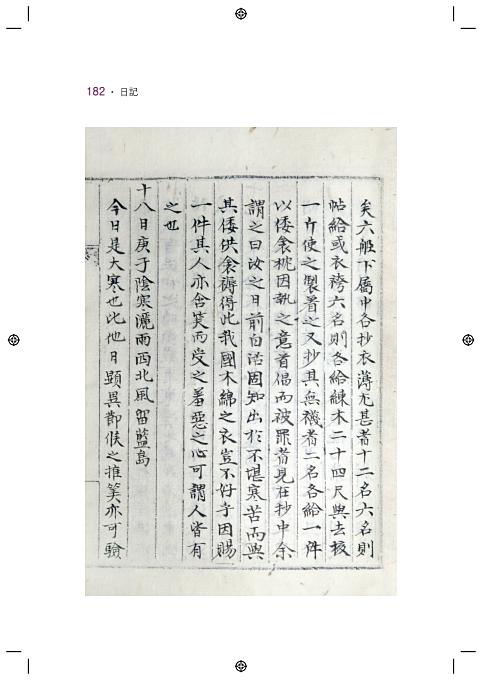 182 · 日記
矣六船下屬中各抄衣薄尤甚者十二名六名則
帖給或衣袴六名則各給練木二十四尺與去核
一斤使之製着之又抄其無襪者二名各給一件
以倭衾枕因執之意首倡而被罪者見在抄中余
謂之曰汝之日前白活固知出於不堪寒苦而與
其倭供衾褥得此我國木綿之衣豈不好乎因賜
一件其人亦含笑而受之羞惡之心可謂人皆有
之也
十八日庚子陰寒灑雨西北風留藍島
今日是大寒也比他日顯異節候之推筭亦可驗